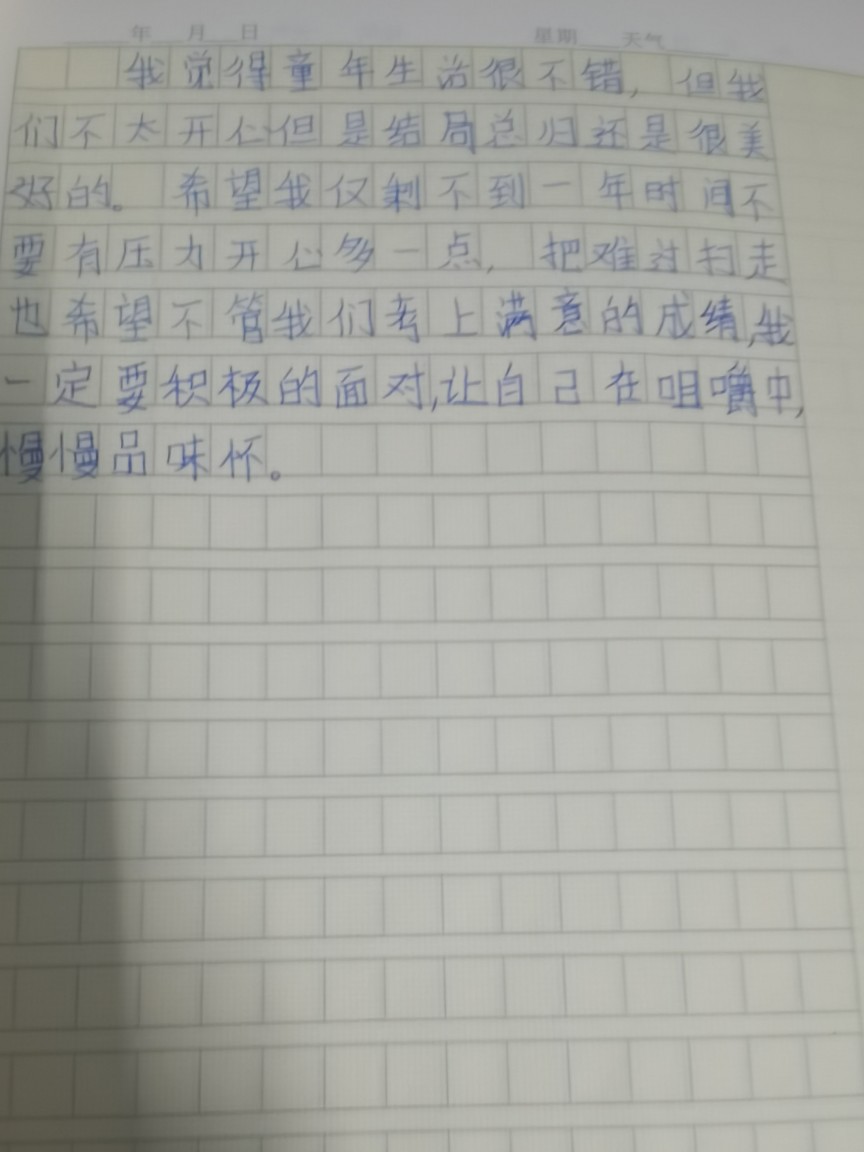 年 月 日 星期 天气
我觉得童年生活很不错，但我
们不太开心但是结局总归还是很美
好的。希望我仅剩不到一年时间不
要有压力开心多一点，把难过扫走
也希望不管我们考上满意的成绩,我
一定要积极的面对,让自己在咀嚼中,
慢慢品味怀。